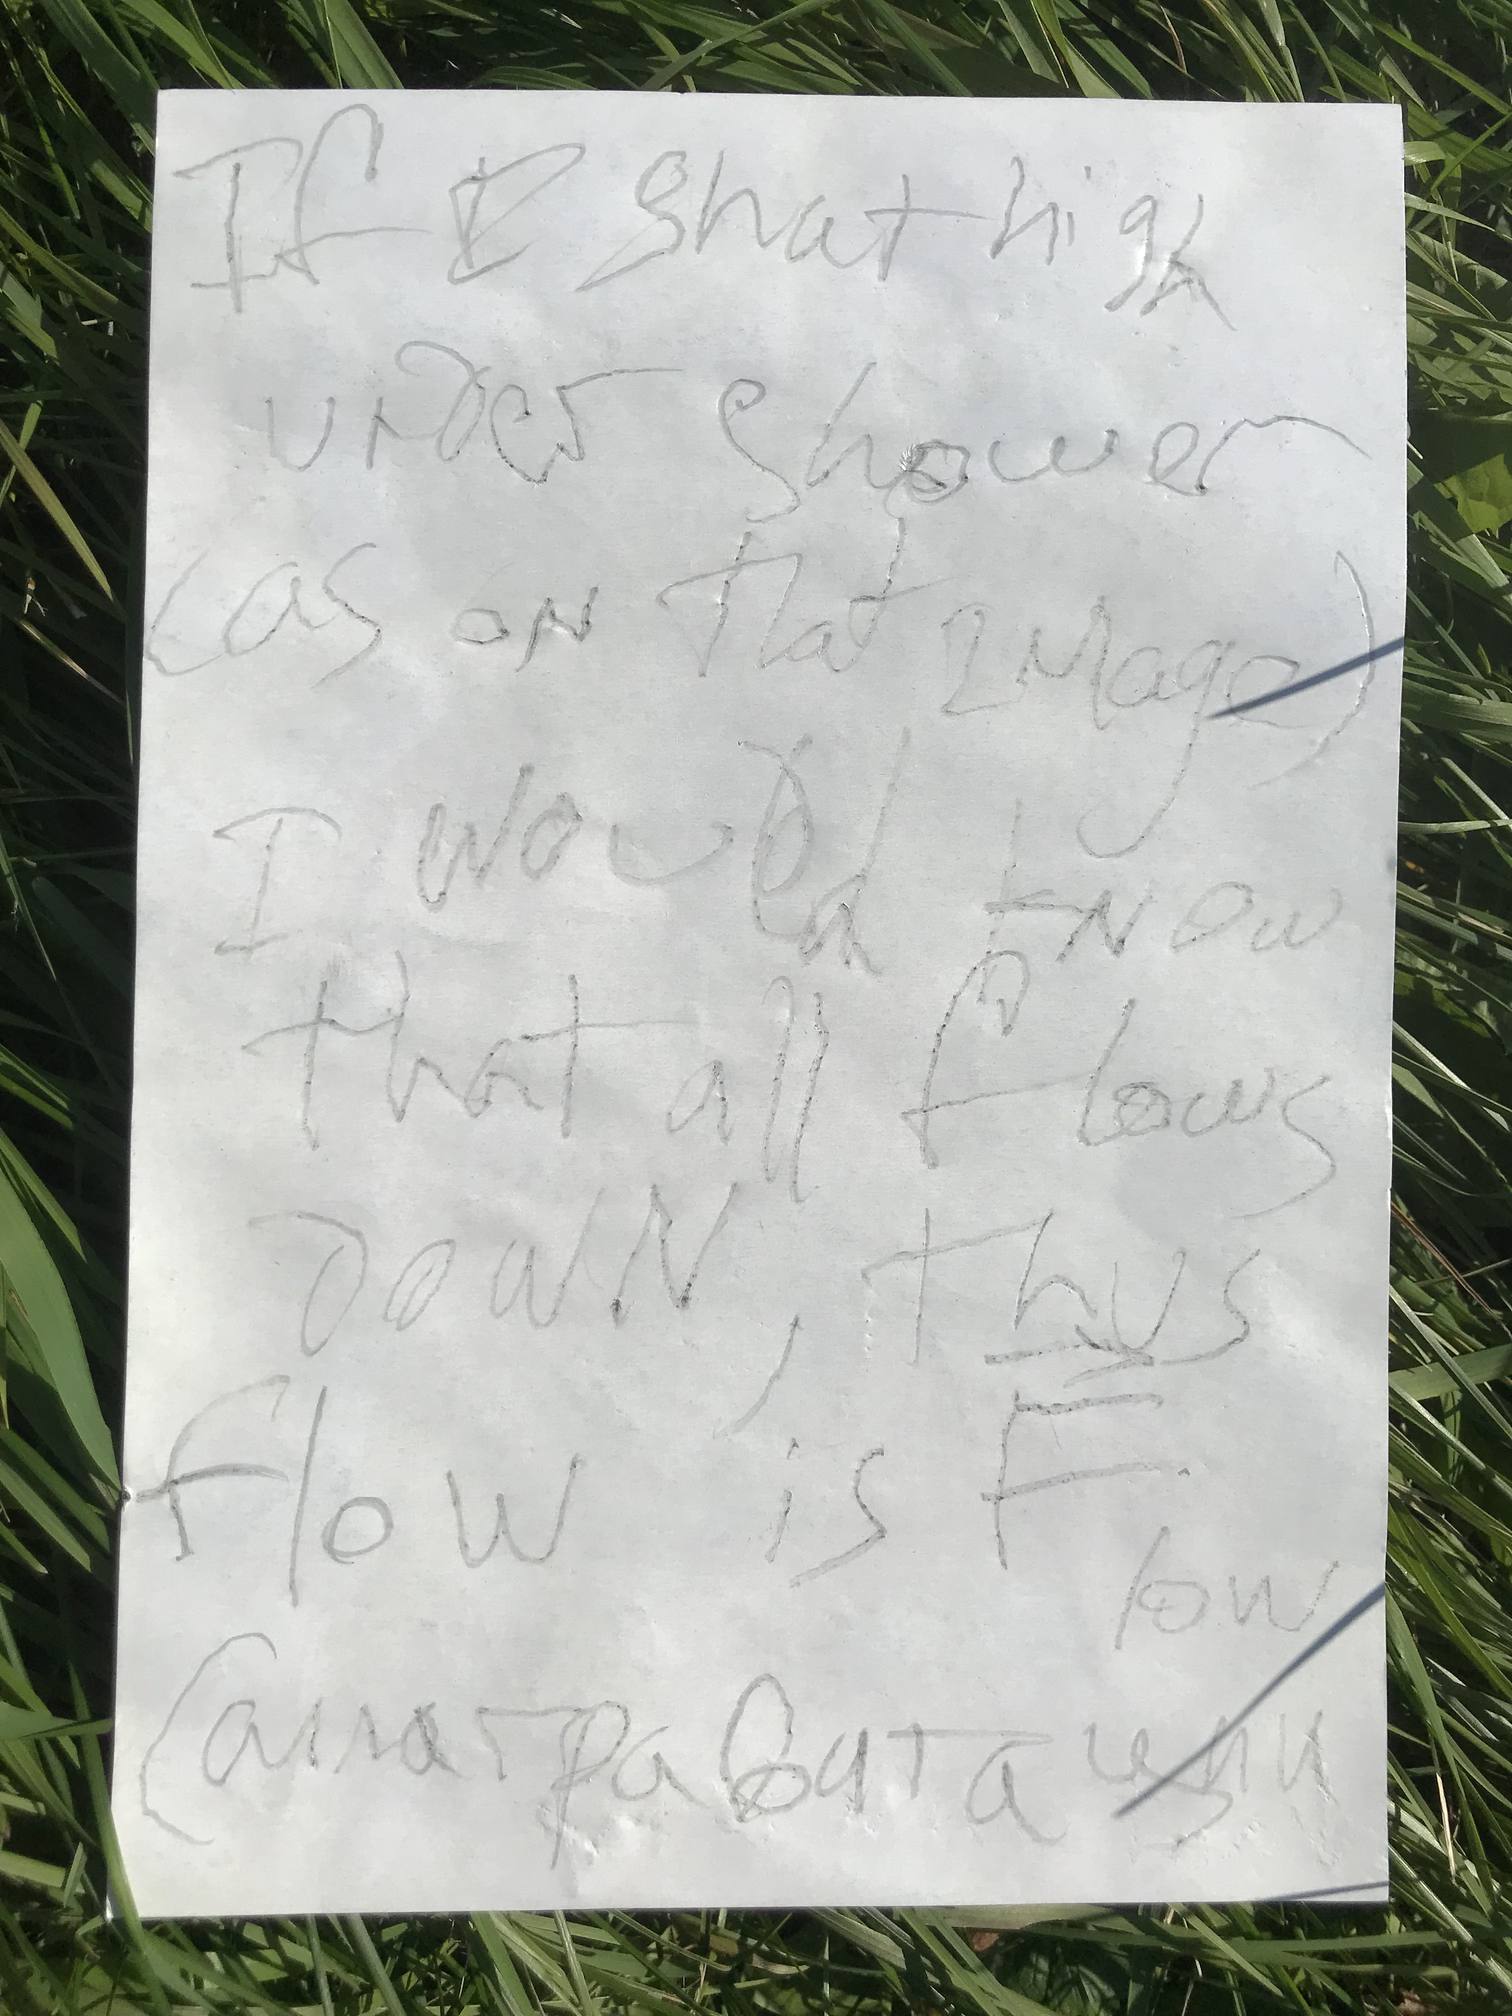 If I shat high
under shower
(as on that image)
I would know
that all flows
down, thus
flow is F
low